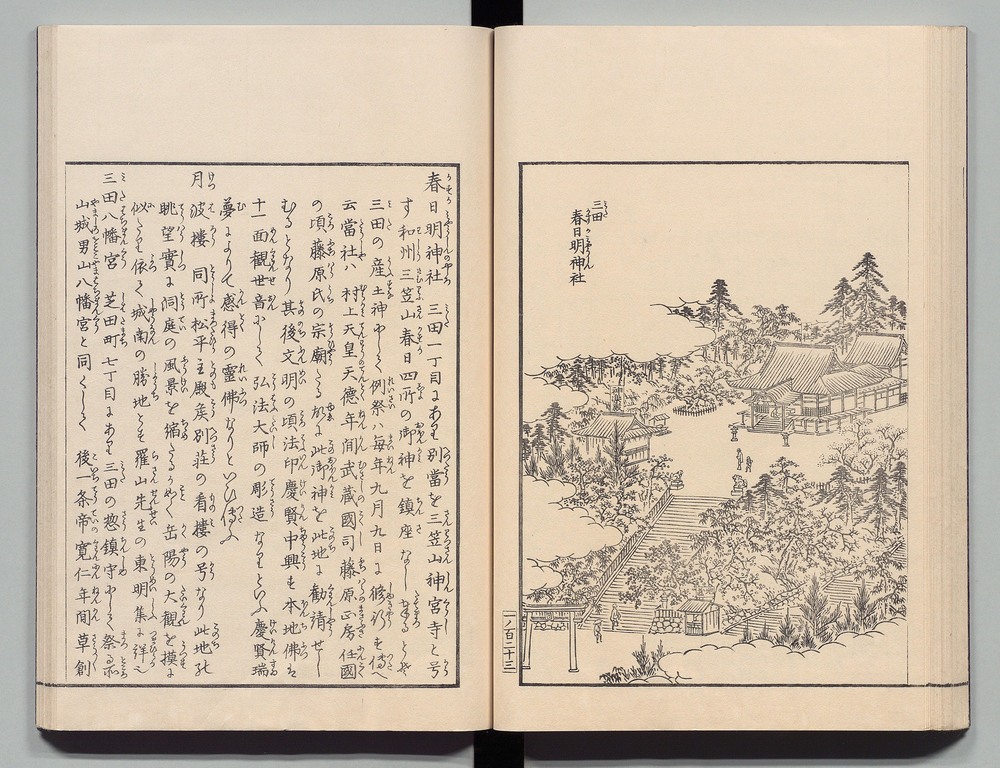 三田
春日明神社
神楽堂
一ノ百二十三
春日明神社 三田一丁目にあり別當を三笠山神宮寺と号
す和州三笠山春日四所の御神を鎮座なし奉るとぞ
三田の産土神にして例祭ハ毎年九月九日に修行す傳へ
云當社ハ村上天皇天徳年間武蔵國司藤原正房任國
の頃藤原氏の宗廟たる故に此御神を此地に勧請せし
むるとなり其後文明の頃法印慶賢中興す本地佛は
十一面観世音にして弘法大師の彫造なりといふ慶賢瑞
夢によりて感得の靈佛なりといひ傳ふ
月波樓 同所松平主殿矦別荘の看樓の号なり此地の
眺望實に洞庭の風景を縮たるがごとく岳陽の大観を摸に
似たり依て城南の勝地とす羅山先生の東明集に詳なり
三田八幡宮 芝田町七丁目にあり三田の惣鎮守にして祭る所
山城男山八幡宮と同じくして後一条帝寛仁年間草創